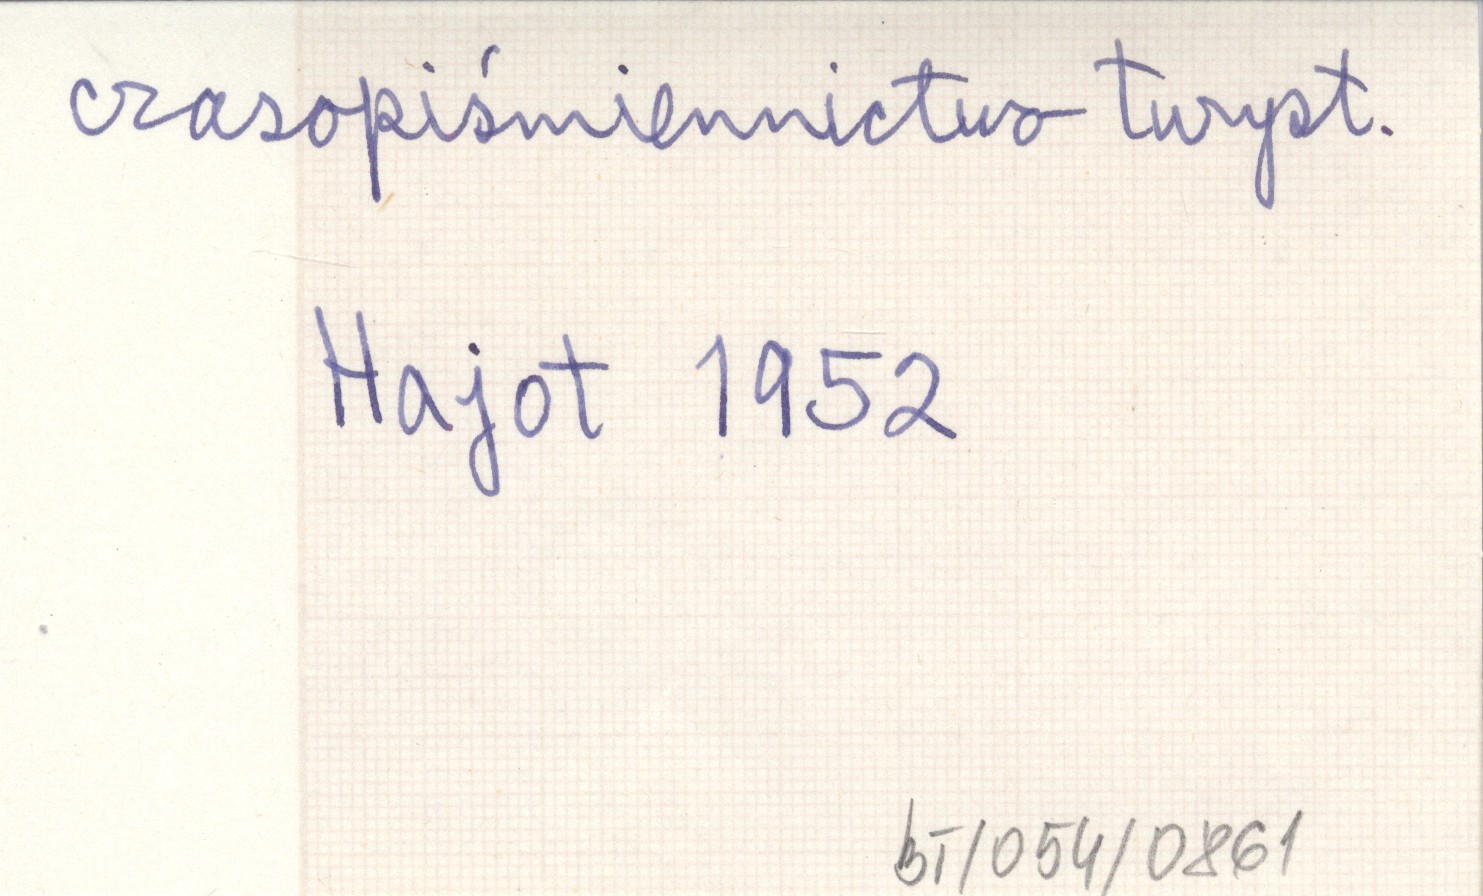 czasopiśmiennictwo turyst.
Hajot 1952
BT/054/0861